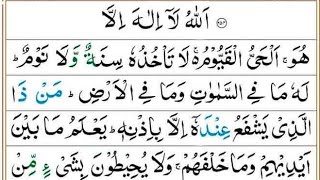 اَللّٰهُ لَاۤ اِلٰهَ اِلَّا
هُوَۚ اَلْحَیُّ الْقَیُّوْمُ۬ۚ لَا تَاْخُذُهٗ سِنَةٌ وَّلَا نَوْمٌؕ
لَهٗ مَا فِی السَّمٰوٰتِ وَمَا فِی الْاَرْضِؕ مَنْ ذَا
الَّذِیْ یَشْفَعُ عِنْدَهٗۤ اِلَّا بِاِذْنِهٖؕ یَعْلَمُ مَا بَیْنَ
اَیْدِیْهِمْ وَمَا خَلْفَهُمْۚ وَلَا یُحِیْطُوْنَ بِشَیْءٍ مِّنْ